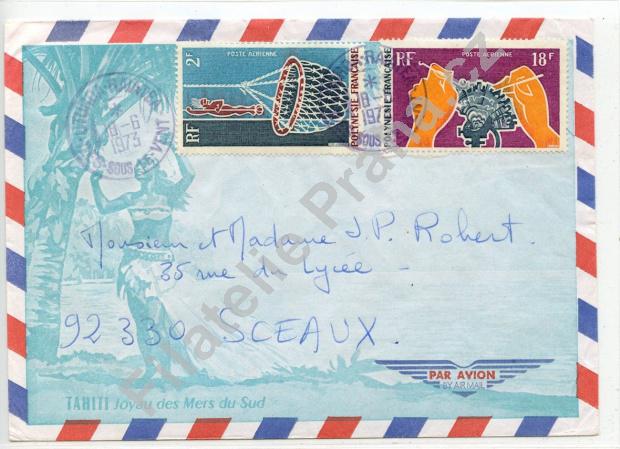 2F
POSTE AÉRIENNE
RF
POLYNÉSIE FRANÇAISE
RF
POSTE AÉRIENNE
18F
POLYNÉSIE FRANÇAISE
8-6
1973
SOUS
VENT
Monsieur et Madame J.P. Robert.
35 rue du Lycée -
92330 SCEAUX.
PAR AVION
BY AIR MAIL
TAHITI Joyau des Mers du Sud
Filatelie Praha.cz